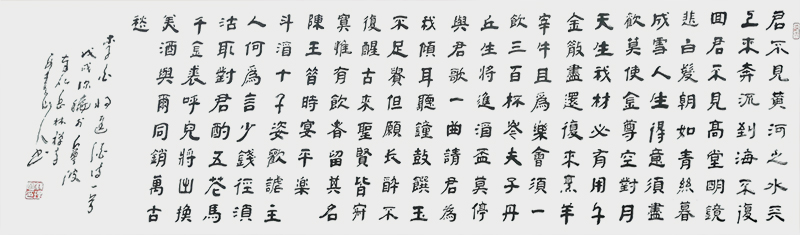 君不見黃河之水天
上來奔流到海不復
回君不見高堂明鏡
悲白髮朝如青絲暮
成雪人生得意須盡
歡莫使金尊空對月
天生我材必有用千
金散盡還復來烹羊
宰牛且為樂會須一
飲三百杯岑夫子丹
丘生將進酒盃莫停
與君歌一曲請君為
我傾耳聽鐘鼓饌玉
不足貴但願長醉不
復醒古來聖賢皆寂
寞惟有飲者留其名
陳王昔時宴平樂
斗酒十千恣歡謔主
人何為言少錢徑須
沽取對君酌五花馬
千金裘呼兒將出換
美酒與爾同銷萬古
愁
李白將進酒詩一首
戊戌深秋於